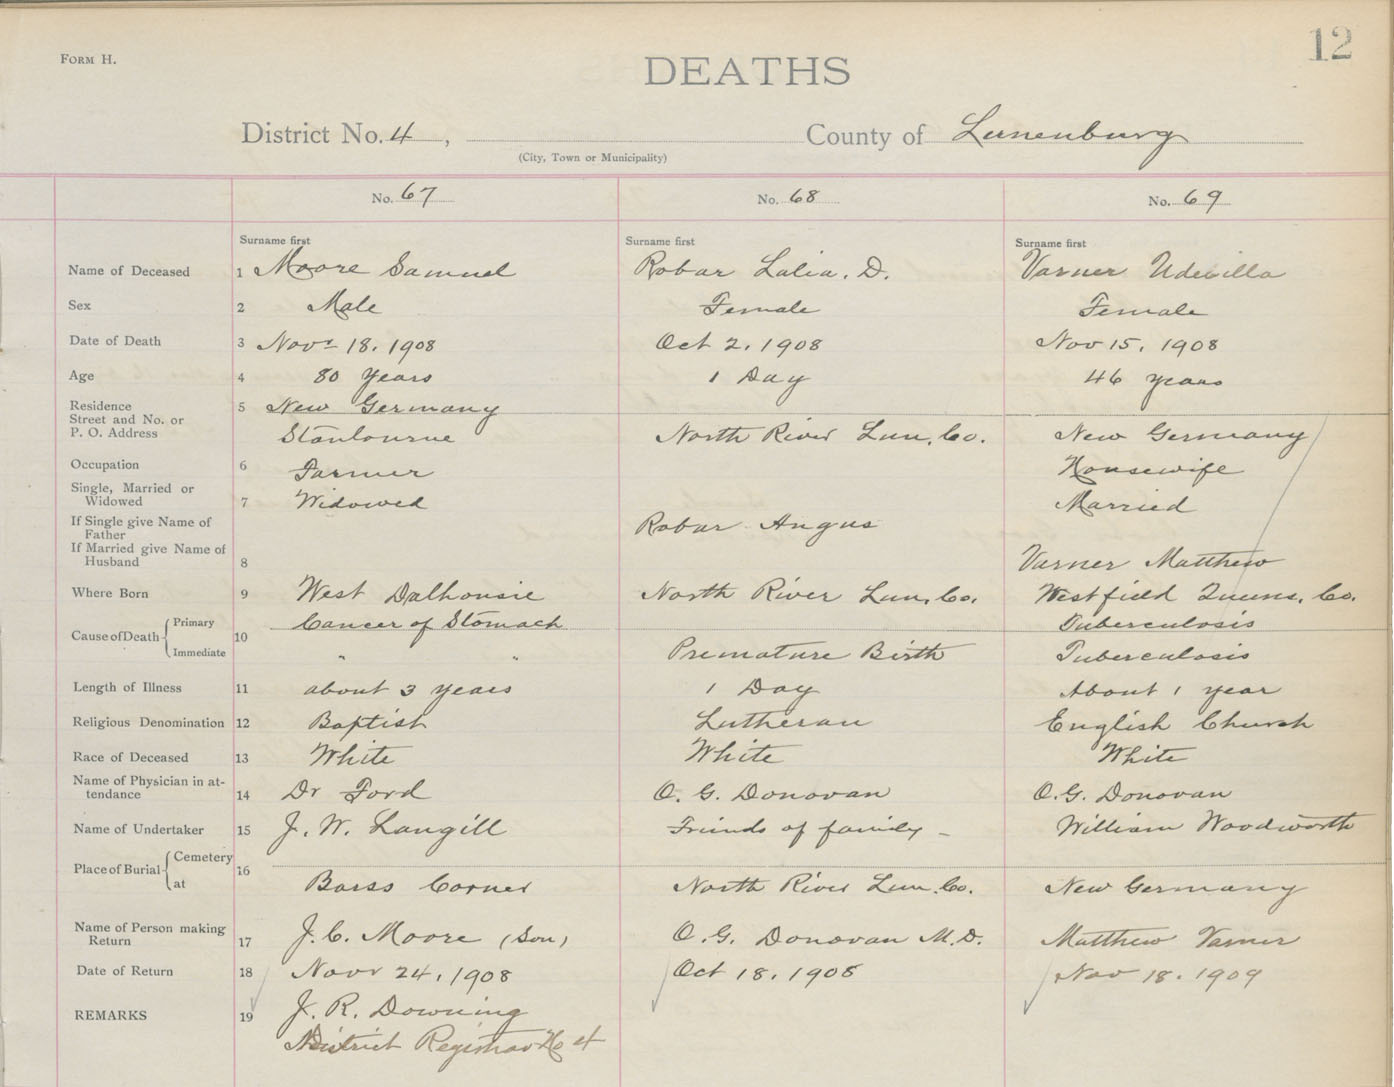 12
FORM H.
DEATHS
District No. 4, County of Lunenburg
(City, Town or Municipality)
No. 67 No. 68 No. 69
Surname first Surname first Surname first
Name of Deceased 1 Moore Samuel Robar Lalia. D. Varner Udevilla
Sex 2 Male Female Female
Date of Death 3 Novr 18, 1908 Oct 2, 1908 Nov 15, 1908
Age 4 80 Years 1 Day 46 years
Residence 5 New Germany
Street and No. or
P. O. Address Stanbourne North River Lun. Co. New Germany
Occupation 6 Farmer Housewife
Single, Married or
Widowed 7 Widowed Married
If Single give Name of
Father Robar Angus
If Married give Name of
Husband 8 Varner Matthew
Where Born 9 West Dalhousie North River Lun. Co. Westfield Queens. Co.
Cause of Death { Primary 10 Cancer of Stomach Tuberculosis
Immediate " " Premature Birth Tuberculosis
Length of Illness 11 about 3 years 1 Day About 1 year
Religious Denomination 12 Baptist Lutheran English Church
Race of Deceased 13 White White White
Name of Physician in at-
tendance 14 Dr Ford O. G. Donovan O.G. Donovan
Name of Undertaker 15 J. W. Langill Friends of family – William Woodworth
Place of Burial { Cemetery 16
at Barss Corner North River Lun. Co. New Germany
Name of Person making
Return 17 J. C. Moore (Son) O. G. Donovan M.D. Matthew Varner
Date of Return 18 Novr 24, 1908 Oct 18. 1908 Nov 18. 1909
REMARKS 19 J. R. Downing
District Registrar No 4